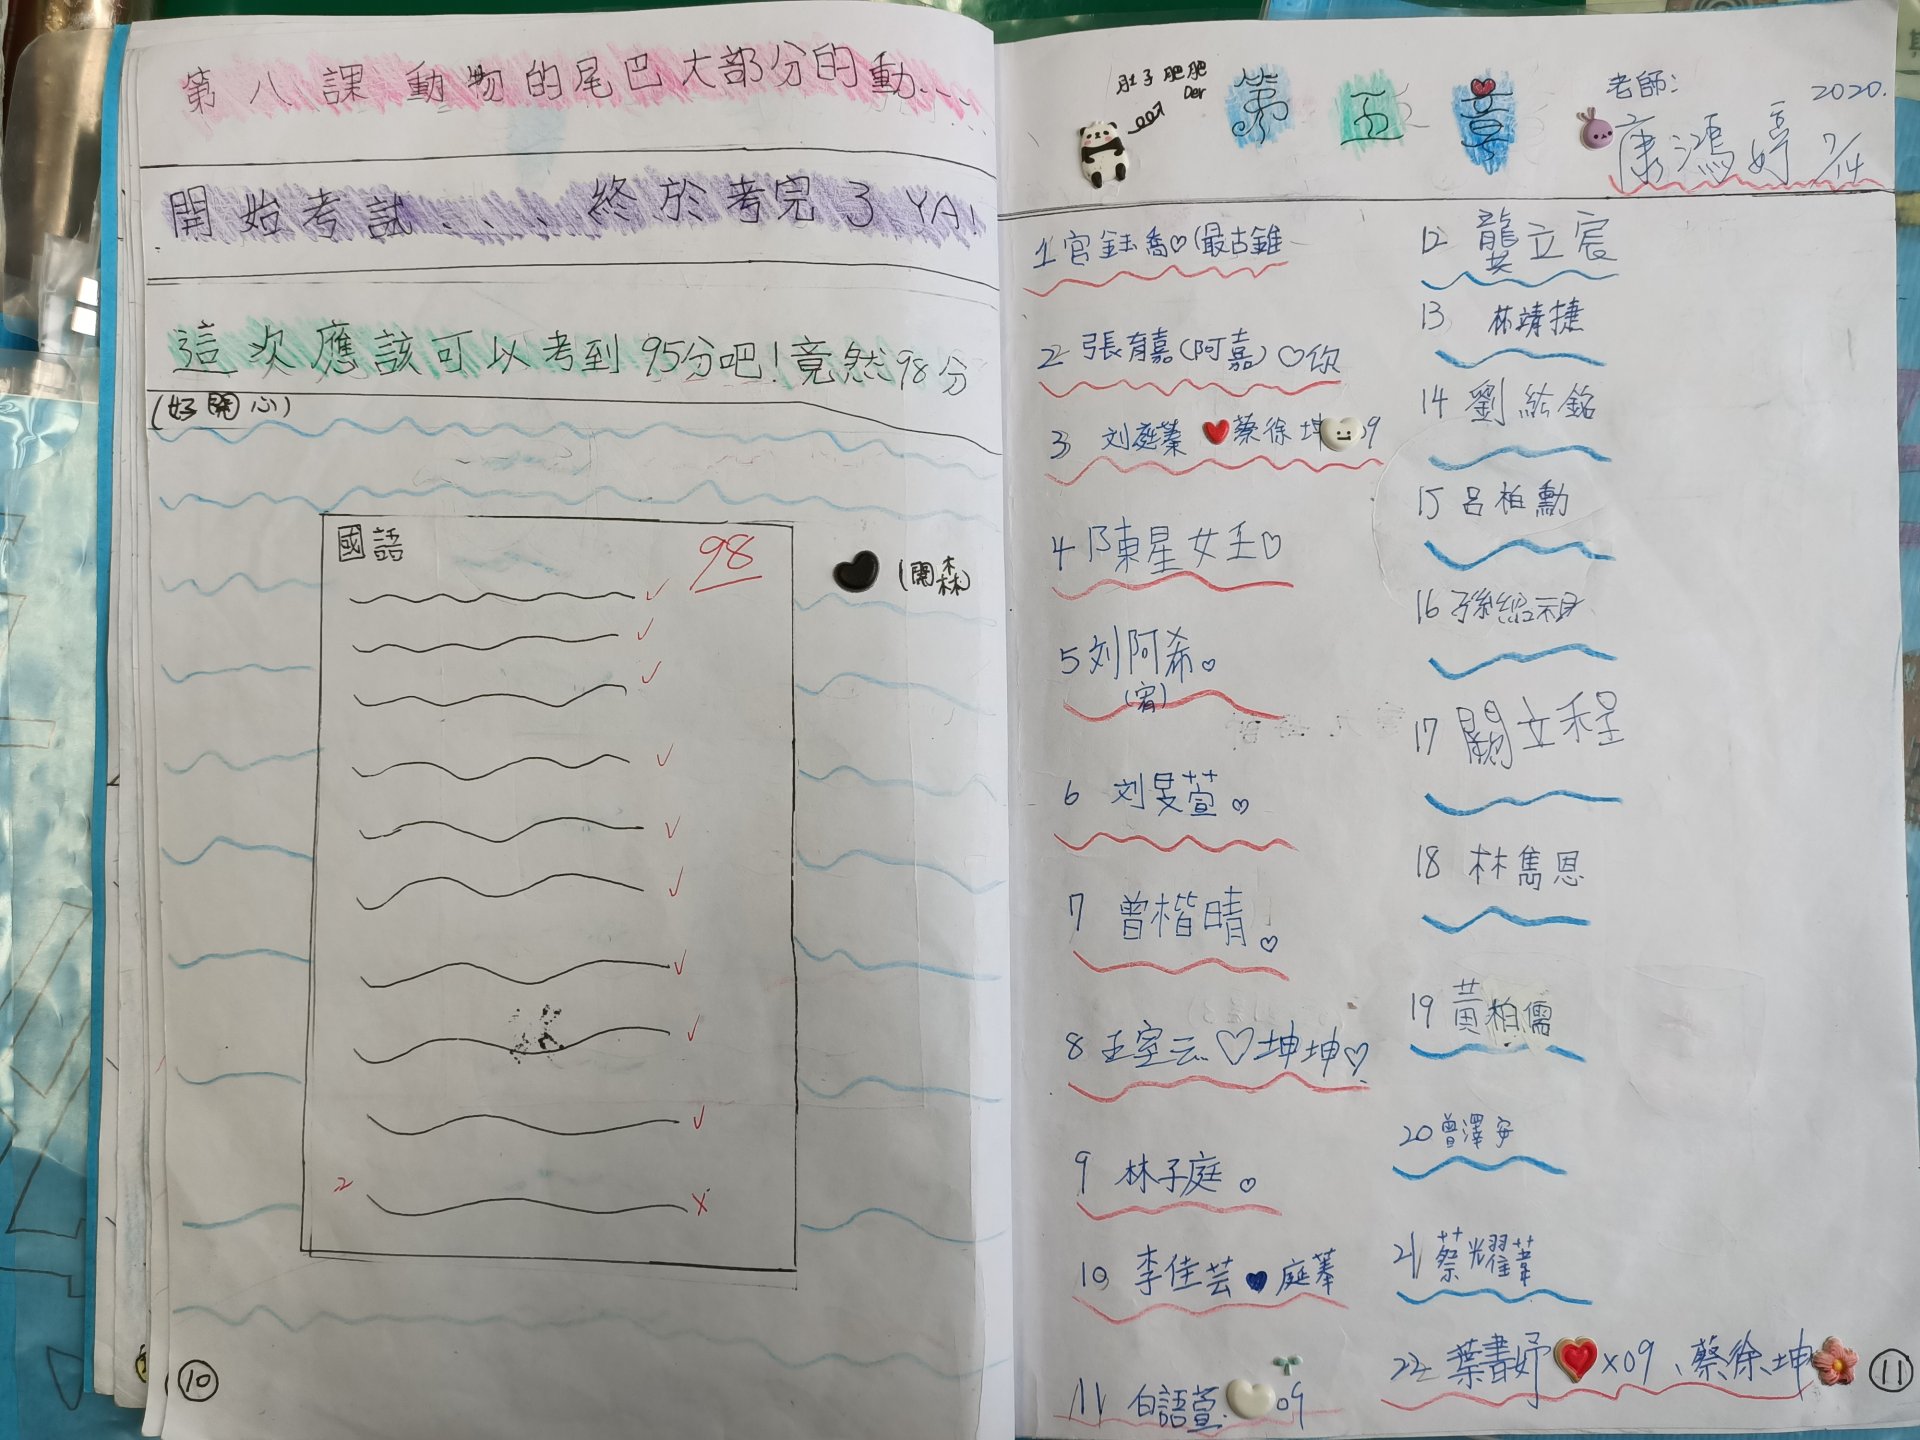 第八課 動物的尾巴大部分的動...
開始考試....終於考完了YA!
這次應該可以考到95分吧!竟然98分
(好開心)
國語 98
(開森)
2
10
肚子肥肥
Der
第五章
老師:
康鴻婷
2020.
7/14
1 官鈺喬♡(最古錐
2 張育嘉(阿嘉)♡你
3 刘庭蓁 蔡徐坤 9
4 陳星女王♡
5 刘阿希♡
(宥)
6 刘旻萱♡
7 曾楷晴♡
8 王室云♡坤坤♡
9 林子庭♡
10 李佳芸♥庭蓁
11 白語萱 09
12 龔立宸
13 林靖捷
14 劉紘銘
15 呂柏勳
16 孫紹祖
17 闕立程
18 林雋恩
19 黃柏儒
20 曾澤安
21 蔡耀葦
22 葉書妤 x09、蔡徐坤
11